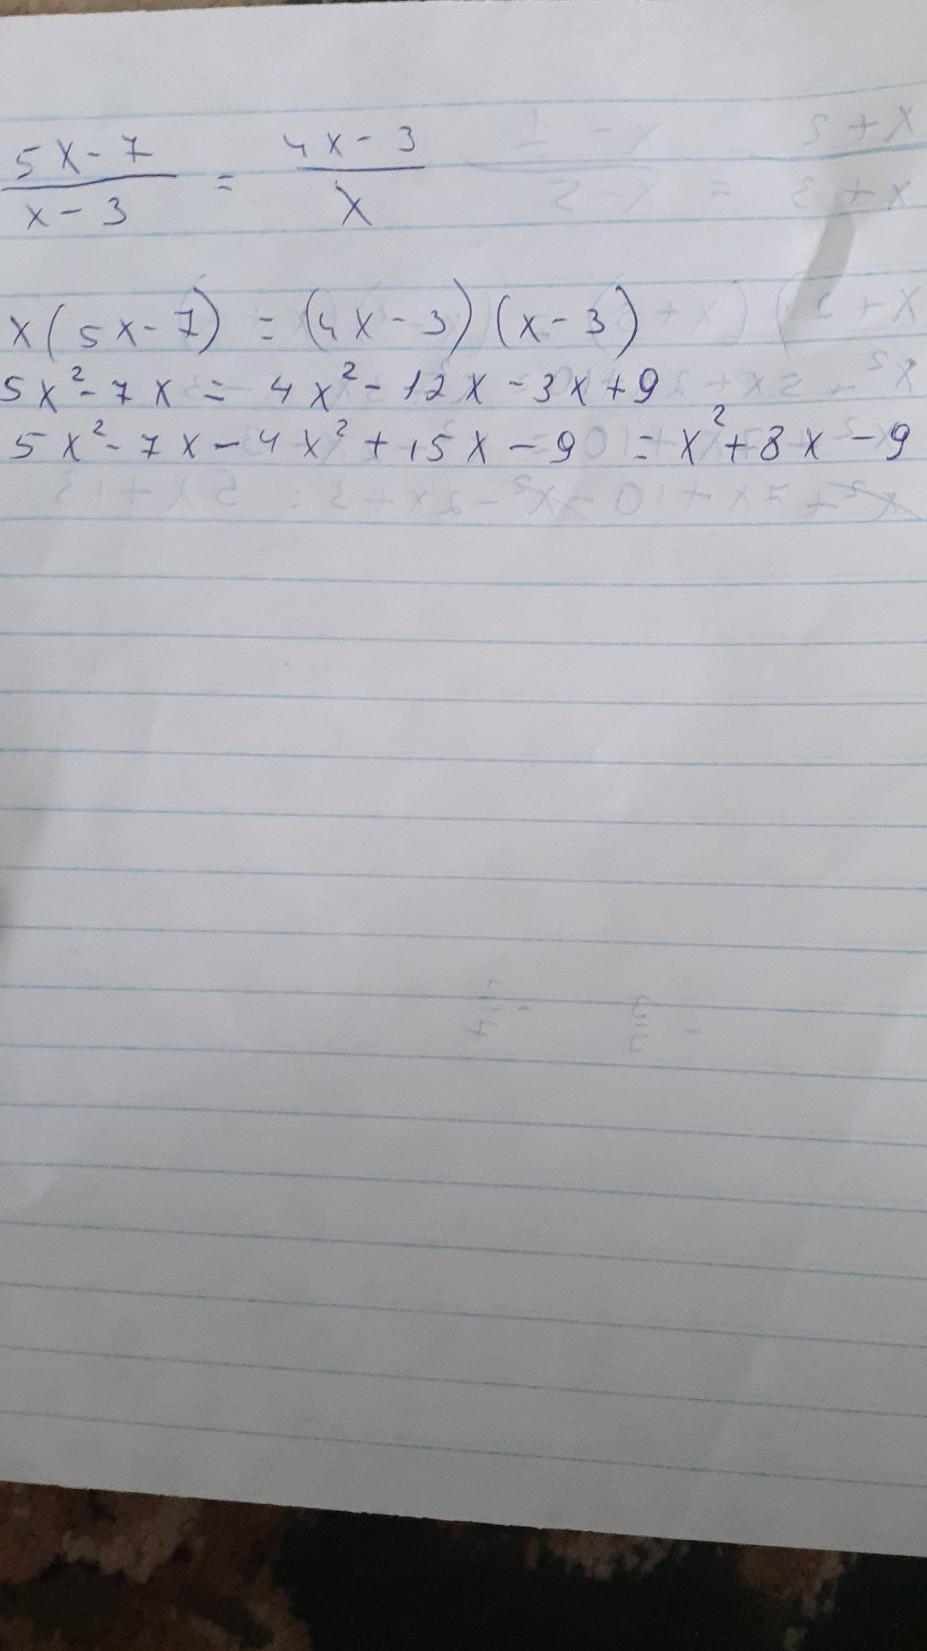 5x-7 / x-3 = 4x-3 / x
x(5x-7) = (4x-3)(x-3)
5x²-7x = 4x²-12x-3x+9
5x²-7x-4x²+15x-9 = x²+8x-9